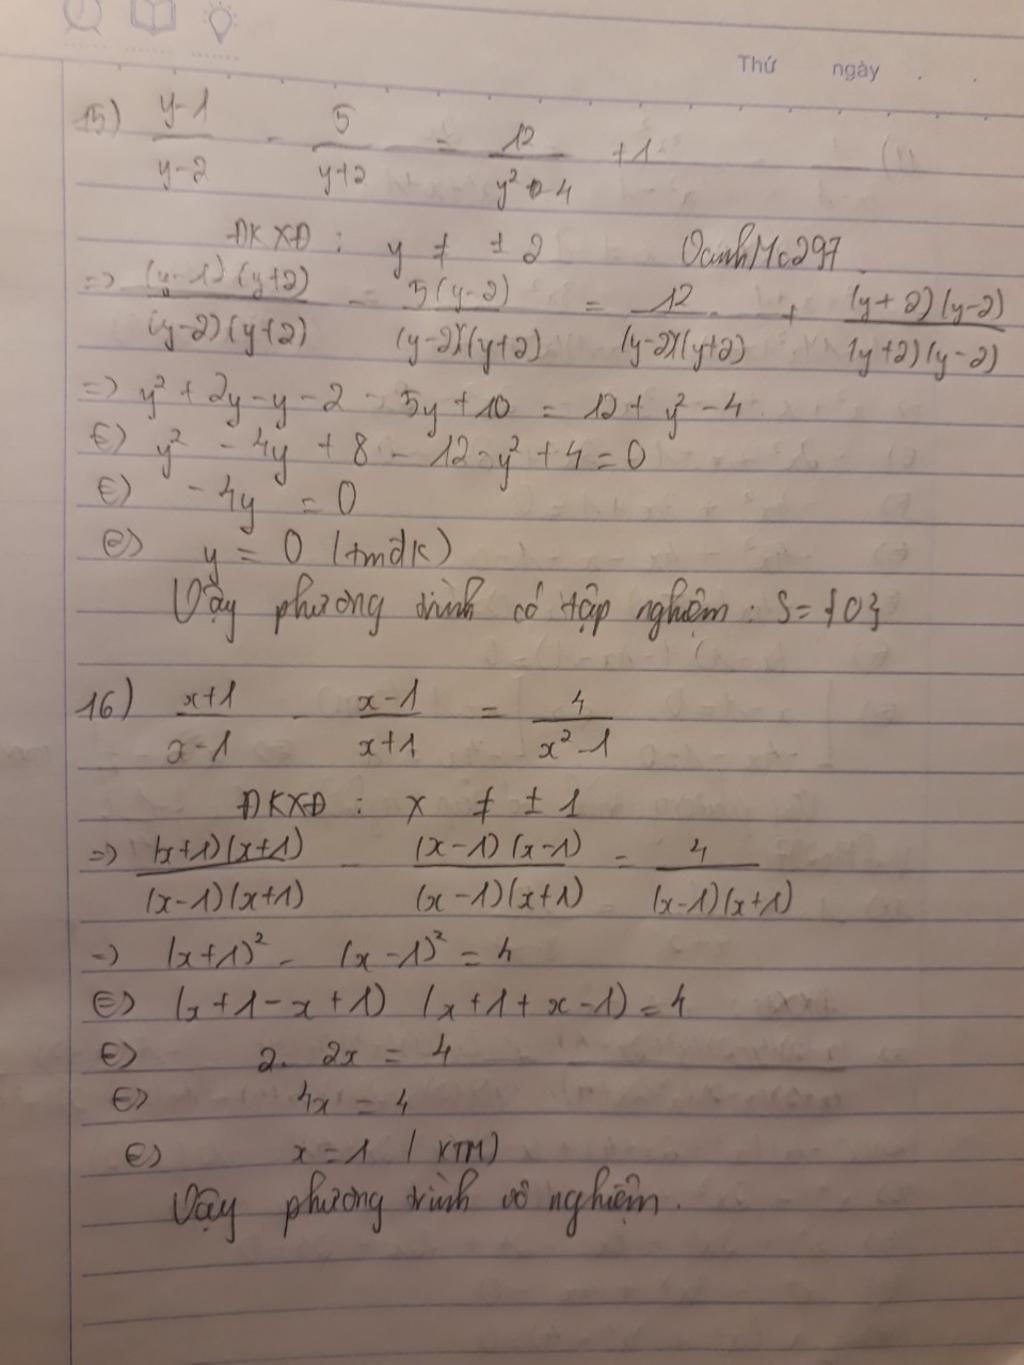 Thứ ngày . .
15) \frac{y-1}{y-2} - \frac{5}{y+2} = \frac{12}{y² - 4} + 1
ĐKXĐ : y ≠ ± 2 OanhMc297
=> \frac{(y-1)(y+2)}{(y-2)(y+2)} - \frac{5(y-2)}{(y-2)(y+2)} = \frac{12}{(y-2)(y+2)} + \frac{(y+2)(y-2)}{(y+2)(y-2)}
=> y² + 2y - y - 2 - 5y + 10 = 12 + y² - 4
<=> y² - 4y + 8 - 12 - y² + 4 = 0
<=> - 4y = 0
<=> y = 0 (tmđk)
Vậy phương trình có tập nghiệm : S = {0}
16) \frac{x+1}{x-1} - \frac{x-1}{x+1} = \frac{4}{x²-1}
ĐKXĐ : x ≠ ± 1
=> \frac{(x+1)(x+1)}{(x-1)(x+1)} - \frac{(x-1)(x-1)}{(x-1)(x+1)} = \frac{4}{(x-1)(x+1)}
=> (x+1)² - (x-1)² = 4
<=> (x+1-x+1) (x+1+x-1) = 4
<=> 2. 2x = 4
<=> 4x = 4
<=> x = 1 (KTM)
Vậy phương trình vô nghiệm.